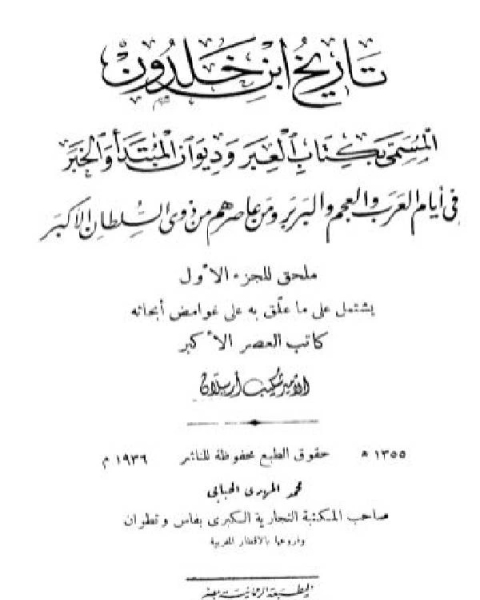 تاريخ ابن خلدون
المسمى بكتاب العبر وديوان المبتدأ والخبر
فى أيام العرب والعجم والبربر ومن عاصرهم من ذوى السلطان الأكبر
ملحق للجزء الأول
يشتمل على ما علّق به على غوامض أبحاثه
كاتب العصر الأكبر
الأمير شكيب أرسلان
١٣٥٥ ھ حقوق الطبع محفوظة للناشر ١٩٣٦ م
محمد المهدى الحبابى
صاحب المكتبة التجارية الكبرى بفاس وتطوان
وفروعها بالأقطار المغربية
المطبعة الرحمانية بمصر